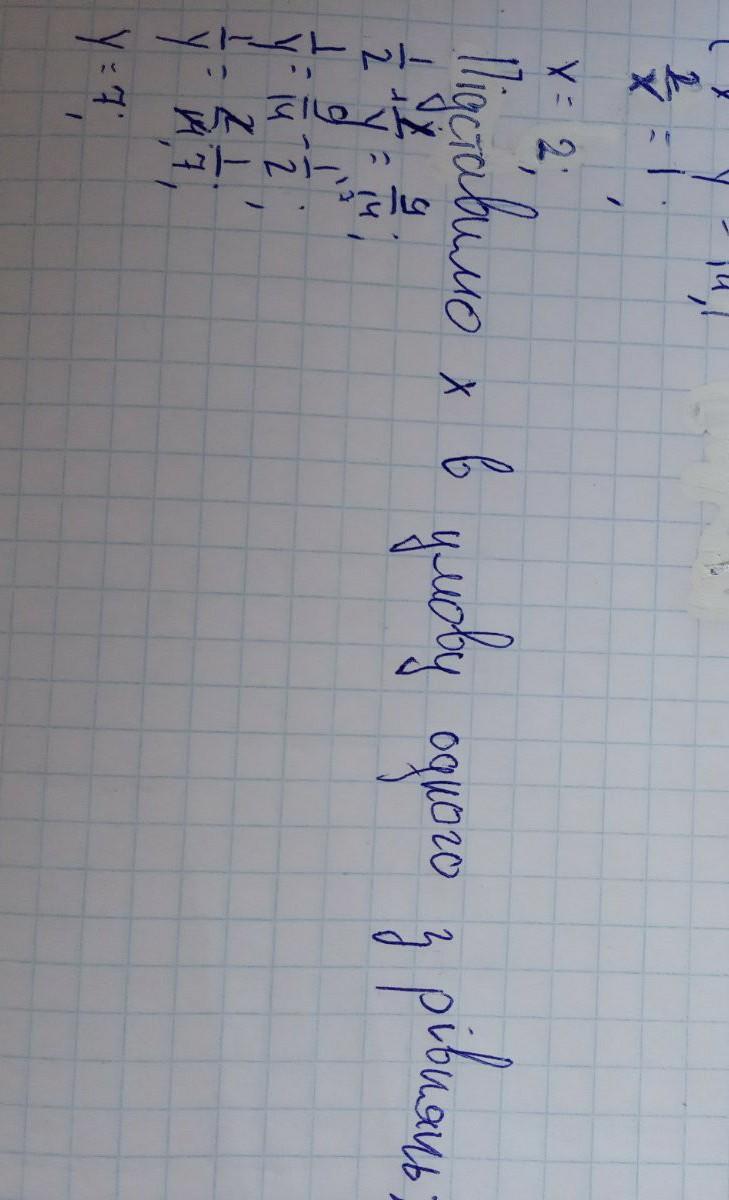 2/x = 1;
x = 2;
Підставимо x в умову одного з рівнянь:
1/2 + 1/y = 9/14;
1/y = 9/14 - 1/2;
1/y = 2/14; 1/7;
y = 7;